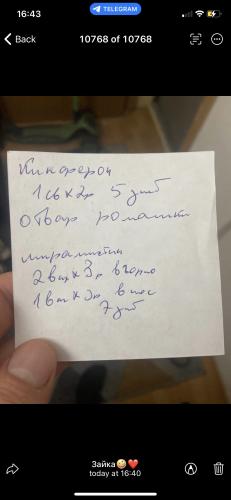 16:43
TELEGRAM
Back
10768 of 10768
Кипферон
1 св х 2р 5 дней
отвар ромашки
мирамистин
2 вп х 3р в горло
1 вп х 3р в нос
7 дней
Зайка🤪❤️
today at 16:40